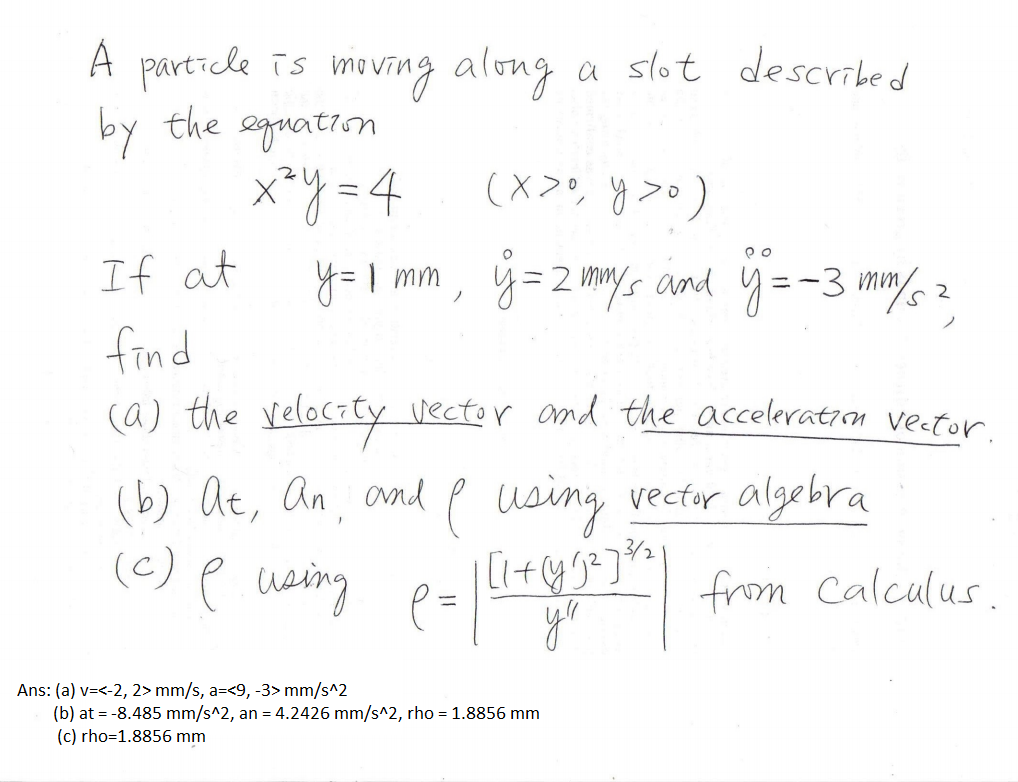 A particle is moving along a slot described
by the equation
x²y = 4 (x>0, y>0)
If at y = 1 mm, ẏ = 2 mm/s and ÿ = -3 mm/s²,
find
(a) the velocity vector and the acceleration vector.
(b) at, an, and ρ using vector algebra
(c) ρ using ρ = |[1+(y')²]^{3/2} / y''| from calculus.
Ans: (a) v=<-2, 2> mm/s, a=<9, -3> mm/s^2
(b) at = -8.485 mm/s^2, an = 4.2426 mm/s^2, rho = 1.8856 mm
(c) rho=1.8856 mm